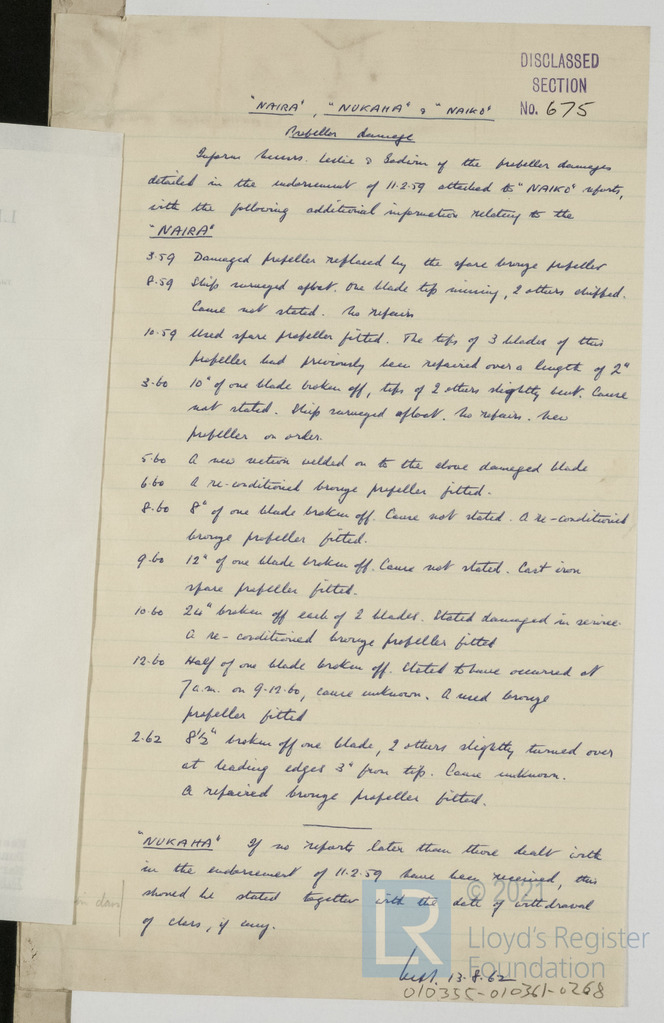 DISCLASSED
SECTION
No. 675
"NAIRA", "NUKAHA" & "NAIKO"
Propeller damage
Inform Messrs. Leslie & Godwin of the propeller damages
detailed in the endorsement of 11.2.59 attached to "NAIKO" reports,
with the following additional information relating to the
"NAIRA"
3.59 Damaged propeller replaced by the spare bronze propeller
8.59 Ship surveyed afloat. One blade tip missing, 2 others chipped.
Cause not stated. No repairs
10.59 Used spare propeller fitted. The tips of 3 blades of this
propeller had previously been repaired over a length of 2"
3.60 10" of one blade broken off, tips of 2 others slightly bent. Cause
not stated. Ship surveyed afloat. No repairs. New
propeller on order.
5.60 A new section welded on to the above damaged blade
6.60 A re-conditioned bronze propeller fitted.
8.60 8" of one blade broken off. Cause not stated. A re-conditioned
bronze propeller fitted.
9.60 12" of one blade broken off. Cause not stated. Cast iron
spare propeller fitted.
10.60 24" broken off each of 2 blades. Stated damaged in service.
A re-conditioned bronze propeller fitted
12.60 Half of one blade broken off. Stated to have occurred at
7 a.m. on 9.12.60, cause unknown. A used bronze
propeller fitted
2.62 8½" broken off one blade, 2 others slightly turned over
at leading edges 3" from tip. Cause unknown.
A repaired bronze propeller fitted.
"NUKAHA" If no reports later than those dealt with
in the endorsement of 11.2.59 have been received, this
should be stated together with the date of withdrawal
of class, if any.
13.8.62
010355-010361-0268
© 2021
LR
Lloyd's Register
Foundation